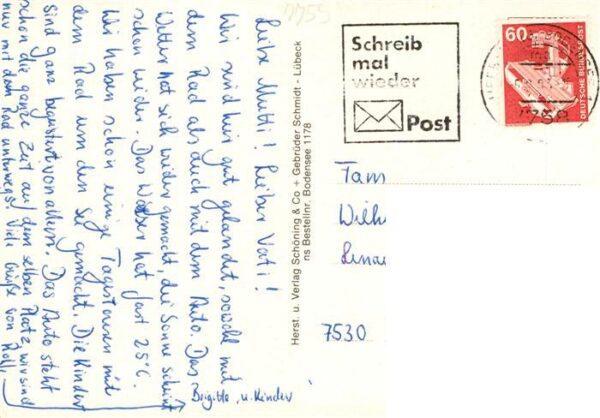 Liebe Mutti! Lieber Vati!
Wir sind hier gut gelandet, sowohl mit
dem Rad als auch mit dem Auto. Das
Wetter hat sich wieder gemacht, die Sonne scheint
schon wieder. Das Wasser hat fast 25°C.
Wir haben schon einige Tagestouren mit
dem Rad um den See gemacht. Die Kinder
sind ganz begeistert von allem. Das Auto steht
schon die ganze Zeit auf dem selben Platz, wir sind
nur mit dem Rad unterwegs. Viele Grüße von Rolf,
Brigitte, u. Kinder
Herst. u. Verlag Schöning & Co + Gebrüder Schmidt - Lübeck
ns Bestellnr. Bodensee 1178
Schreib
mal
wieder
Post
60
DEUTSCHE BUNDESPOST
Fam
Wilh
7530